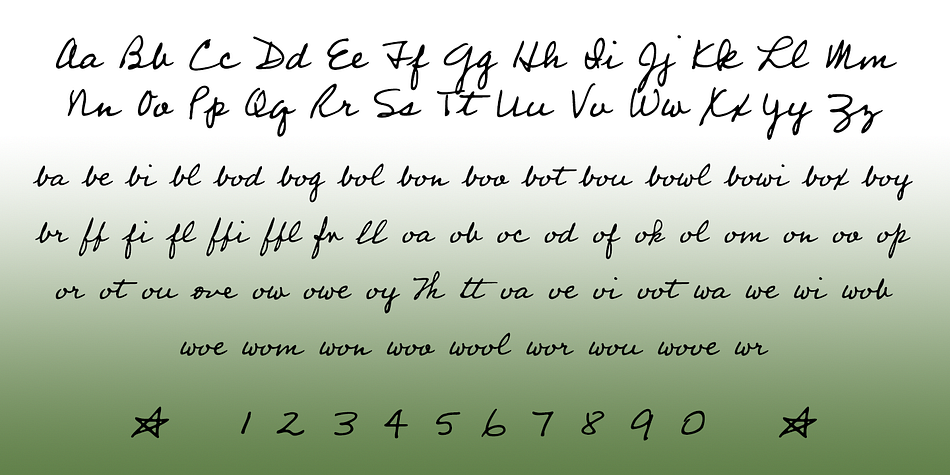 Aa Bb Cc Dd Ee Ff Gg Hh Ii Jj Kk Ll Mm
Nn Oo Pp Qq Rr Ss Tt Uu Vv Ww Xx Yy Zz
ba be bi bl bod bog bol bon boo bot bou bowl bowi box boy
br ff fi fl ffi ffl fr ll oa ob oc od of ok ol om on oo op
or ot ou ove ow owe oy Th tt va ve vi vot wa we wi wob
woe wom won woo wool wor wou wove wr
1 2 3 4 5 6 7 8 9 0